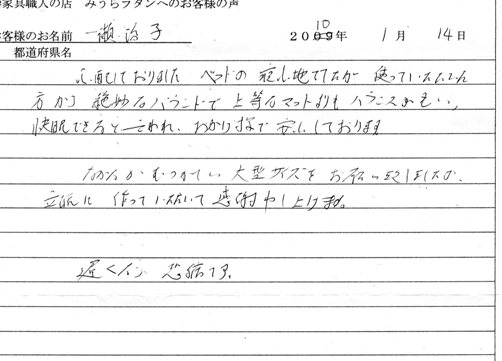 家具職人の店 みうらフタンへのお客様の声
お客様のお名前 一瀬 治子 2009 10年 1月 14日
都道府県名
心配しておりました ベットの寝心地でしたが 使っていただいた
方から 絶妙なバウンドで 上等なマットよりもバランスがよい、
快眠できると言われ、おかげさまで安心しております
大型サイズをお願い致しましたが、
立派に作っていただいて感謝申し上げます。
遅くなり 恐縮です。